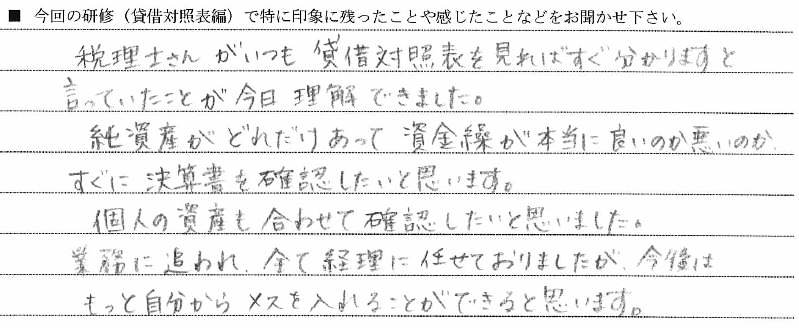 ■ 今回の研修（貸借対照表編）で特に印象に残ったことや感じたことなどをお聞かせ下さい。
税理士さんがいつも貸借対照表を見ればすぐ分かりますと
言っていたことが今日理解できました。
純資産がどれだけあって資金繰が本当に良いのか悪いのか、
すぐに決算書を確認したいと思います。
個人の資産も合わせて確認したいと思いました。
業務に追われ、全て経理に任せておりましたが、今後は
もっと自分からメスを入れることができると思います。